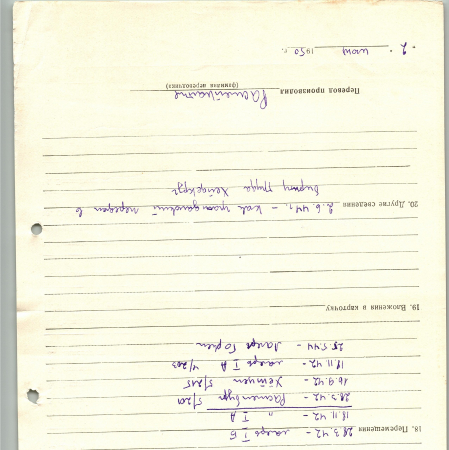 18. Перемещения 28.3.42 - лагерь I Б
18.11.42 - " I А
28.3.42 - Растенбург 5/201
16.9.42 - Хеймен 5/215
19.11.42 - лагерь I А 4/203
28.5.44 - лагерь
19. Вложения в карточку
20. Другие сведения 2.6.44г. - как гражданский передан в
биржу труда Хейдекруг
Перевод произвела
(фамилия переводчика)
"2" июня 1950 г.